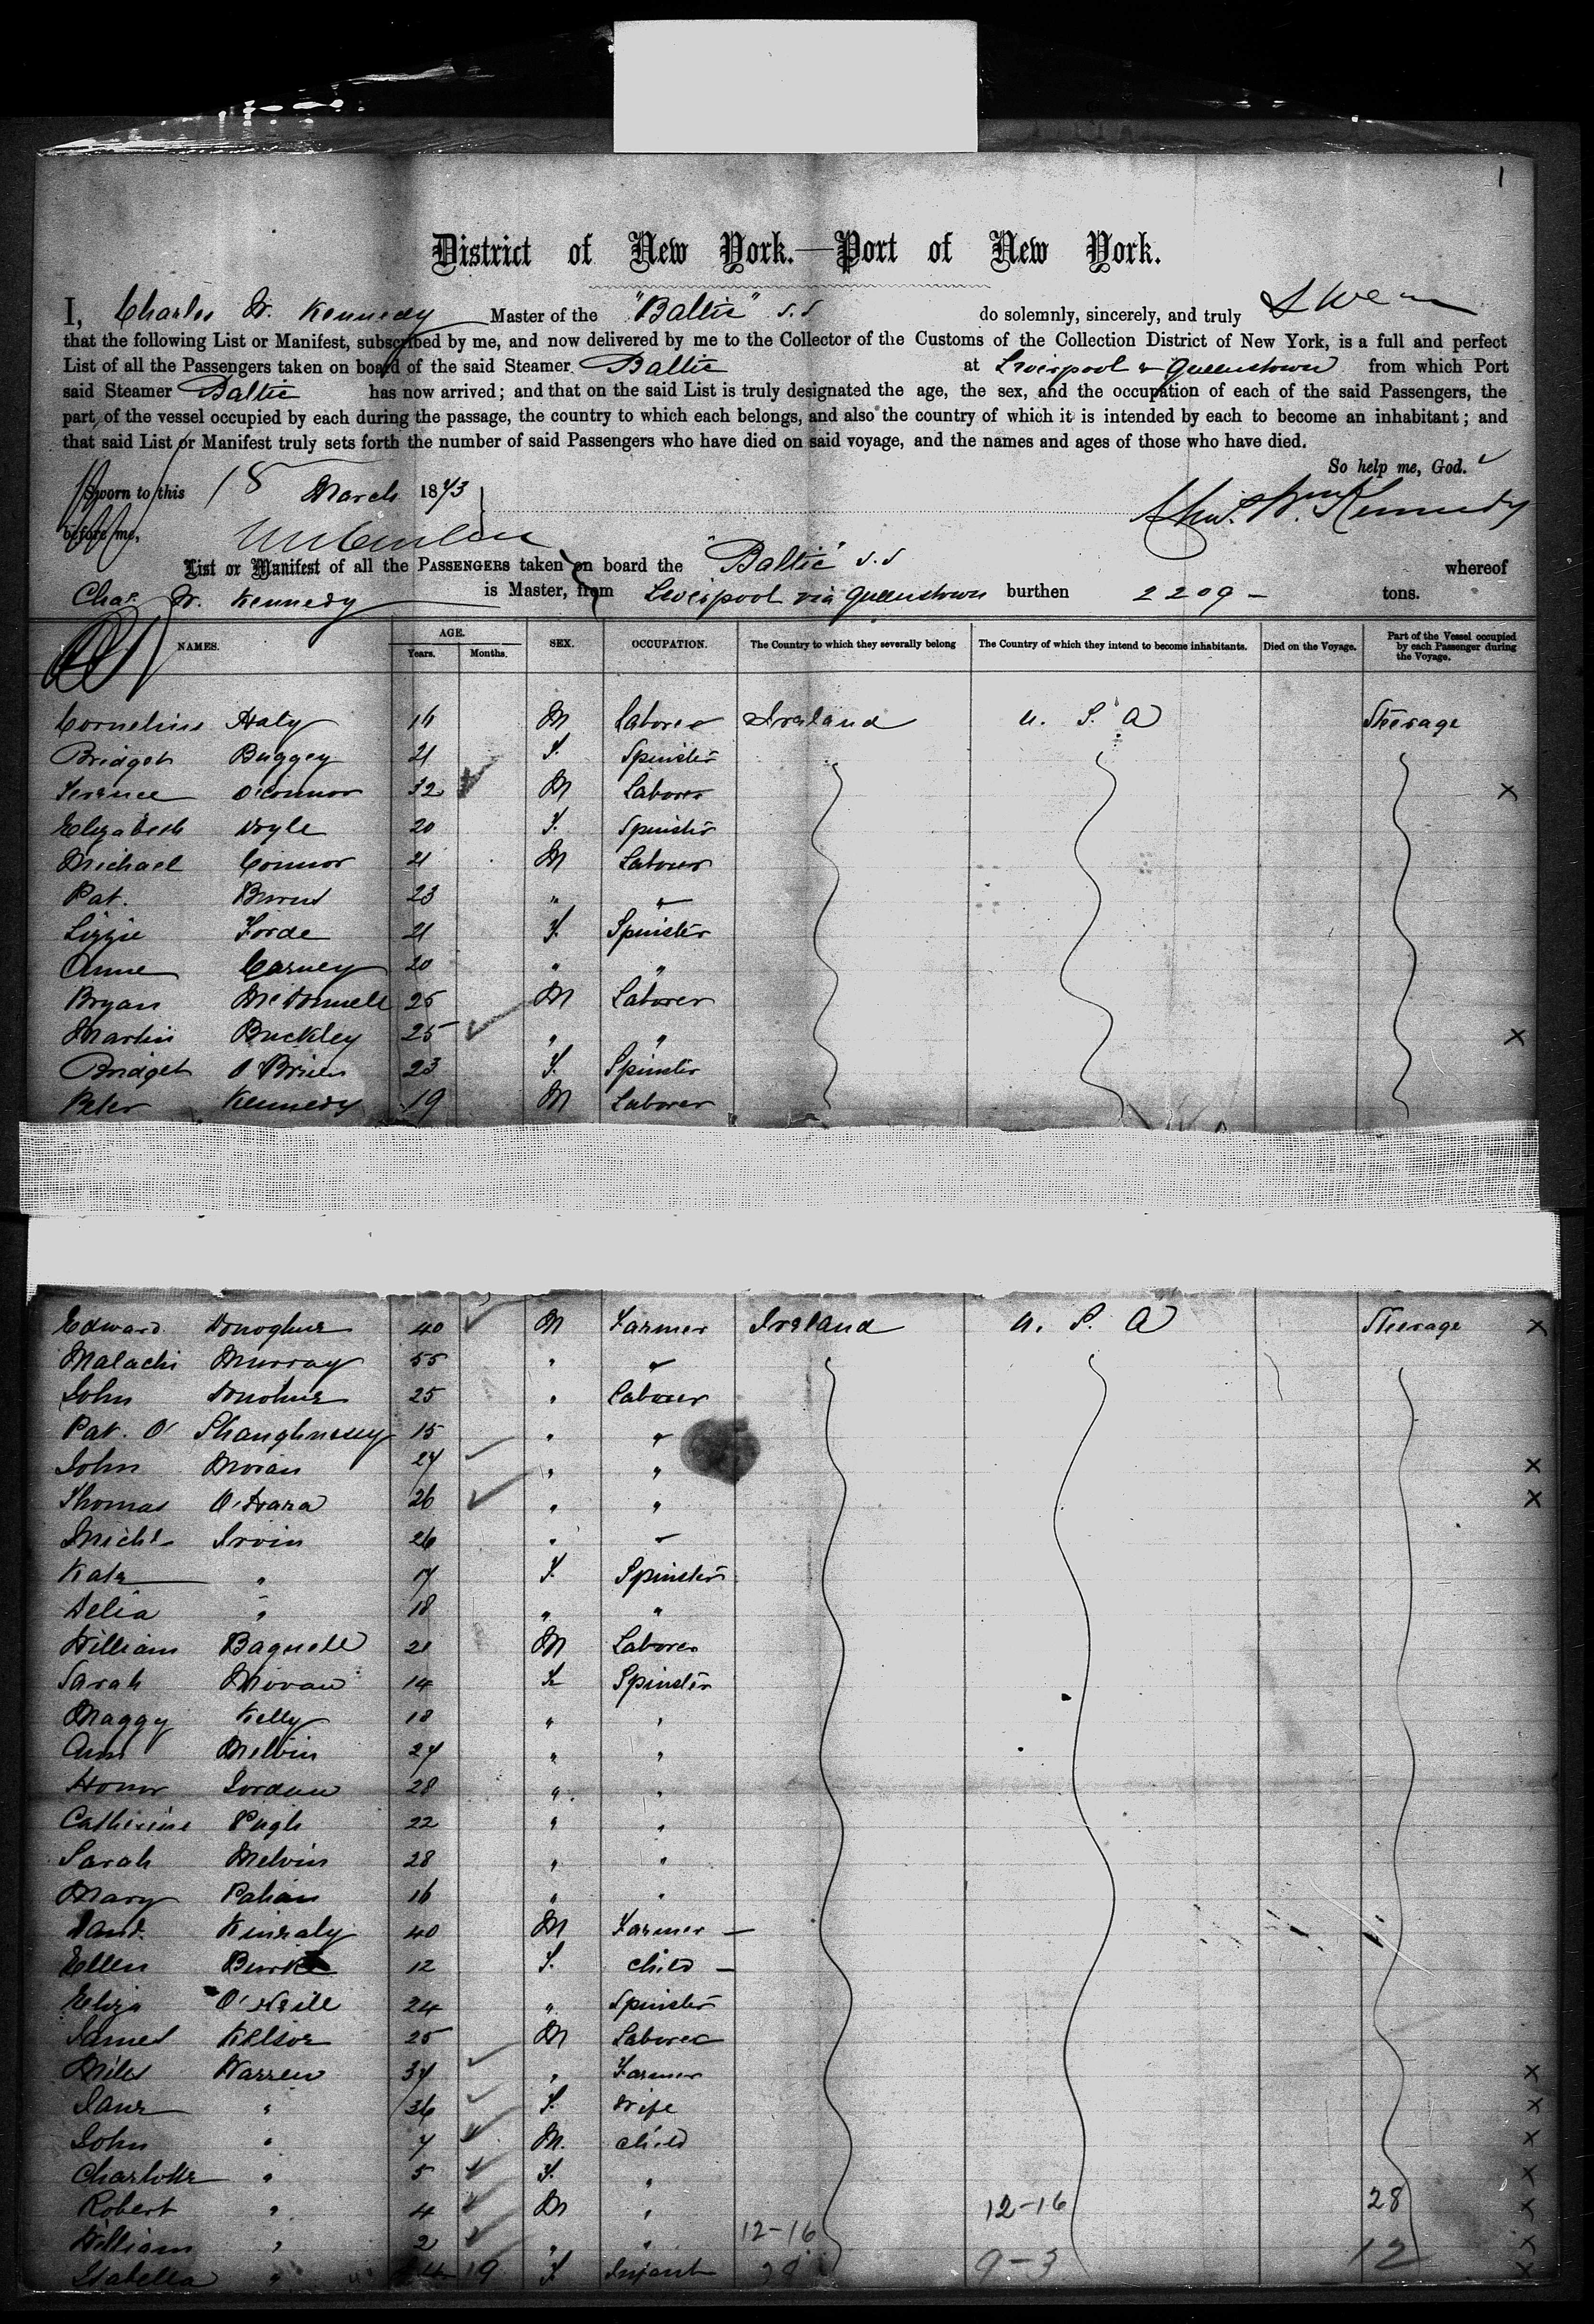 1
District of New York.—Port of New York.
I, Charles W. Kennedy Master of the "Baltic" S.S do solemnly, sincerely, and truly Swear
that the following List or Manifest, subscribed by me, and now delivered by me to the Collector of the Customs of the Collection District of New York, is a full and perfect
List of all the Passengers taken on board of the said Steamer Baltic at Liverpool & Queenstown from which Port
said Steamer Baltic has now arrived; and that on the said List is truly designated the age, the sex, and the occupation of each of the said Passengers, the
part of the vessel occupied by each during the passage, the country to which each belongs, and also the country of which it is intended by each to become an inhabitant; and
that said List or Manifest truly sets forth the number of said Passengers who have died on said voyage, and the names and ages of those who have died.
So help me, God.
Sworn to this 18 March 1873
Chas. W. Kennedy
before me,
List or Manifest of all the PASSENGERS taken on board the "Baltic" S.S whereof
Chas. W. Kennedy is Master, from Liverpool via Queenstown burthen 2209 - tons.
NAMES. AGE. Years. Months. SEX. OCCUPATION. The Country to which they severally belong The Country of which they intend to become inhabitants. Died on the Voyage. Part of the Vessel occupied by each Passenger during the Voyage.
Cornelius Haly 16 M Laborer Ireland U. S. A Steerage
Bridget Buggey 21 F. Spinster
Terence O'Connor 32 M Laborer x
Elizabeth Doyle 20 F. Spinster
Michael Connor 21 M Laborer
Pat. Burns 23 " "
Lizzie Forde 21 F. Spinster
Anne Carney 20 " "
Bryan McDonnell 25 M Laborer
Martin Buckley 25 " " x
Bridget O'Brien 23 F. Spinster
Peter Kennedy 19 M Laborer
Edward Donoghue 40 M Farmer Ireland U. S. A Steerage x
Malachi Murray 55 " "
John Donohue 25 " Laborer
Pat. O' Shaughnessy 15 " "
John Moran 27 " " x
Thomas O'Hara 26 " " x
Michl Irvin 26 " "
Kate " 17 F. Spinster
Delia " 18 " "
William Bagnell 21 M Laborer
Sarah Moran 14 F Spinster
Maggy Kelly 18 " "
Ann Melvin 27 " "
Honor Jordan 28 " "
Catherine Pugh 22 " "
Sarah Melvin 28 " "
Mary Pahan 16 " "
Kinealy 40 M Farmer -
Ellen Burke 12 F. Child -
Eliza O'Neill 24 " Spinster
James 25 M Laborer
Miles Warren 37 " Farmer x
Jane " 36 F. Wife x
John " 7 M. Child x
Charlotte " 5 F. " x
Robert " 4 M " 12-16 28 x
William " 2 " " 12-16 x
Isabella " 9 F. Infant 9-3 12 x